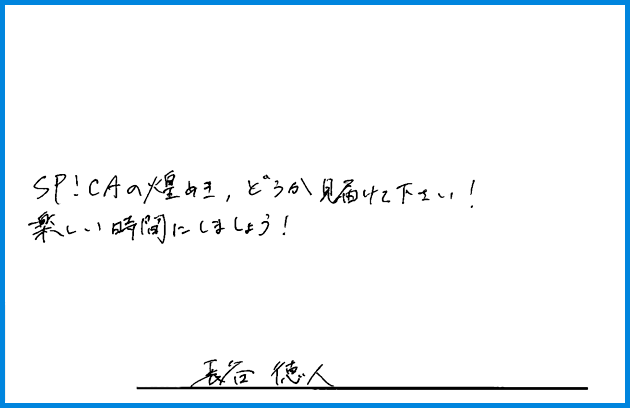 SP!CAの煌めき，どうか見届けて下さい！
楽しい時間にしましょう！
長谷徳人